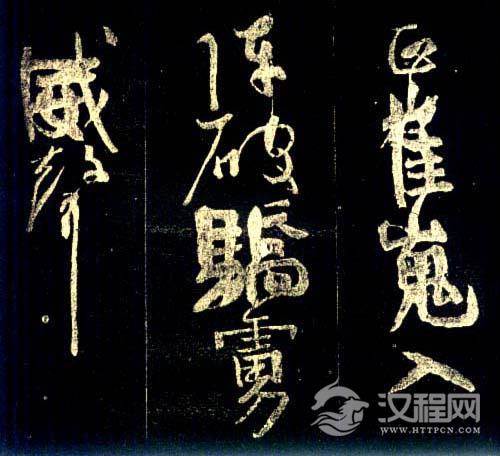 正崔嵬入
陣破驕虜
威聲
汉程网
WWW.HTTPCN.COM